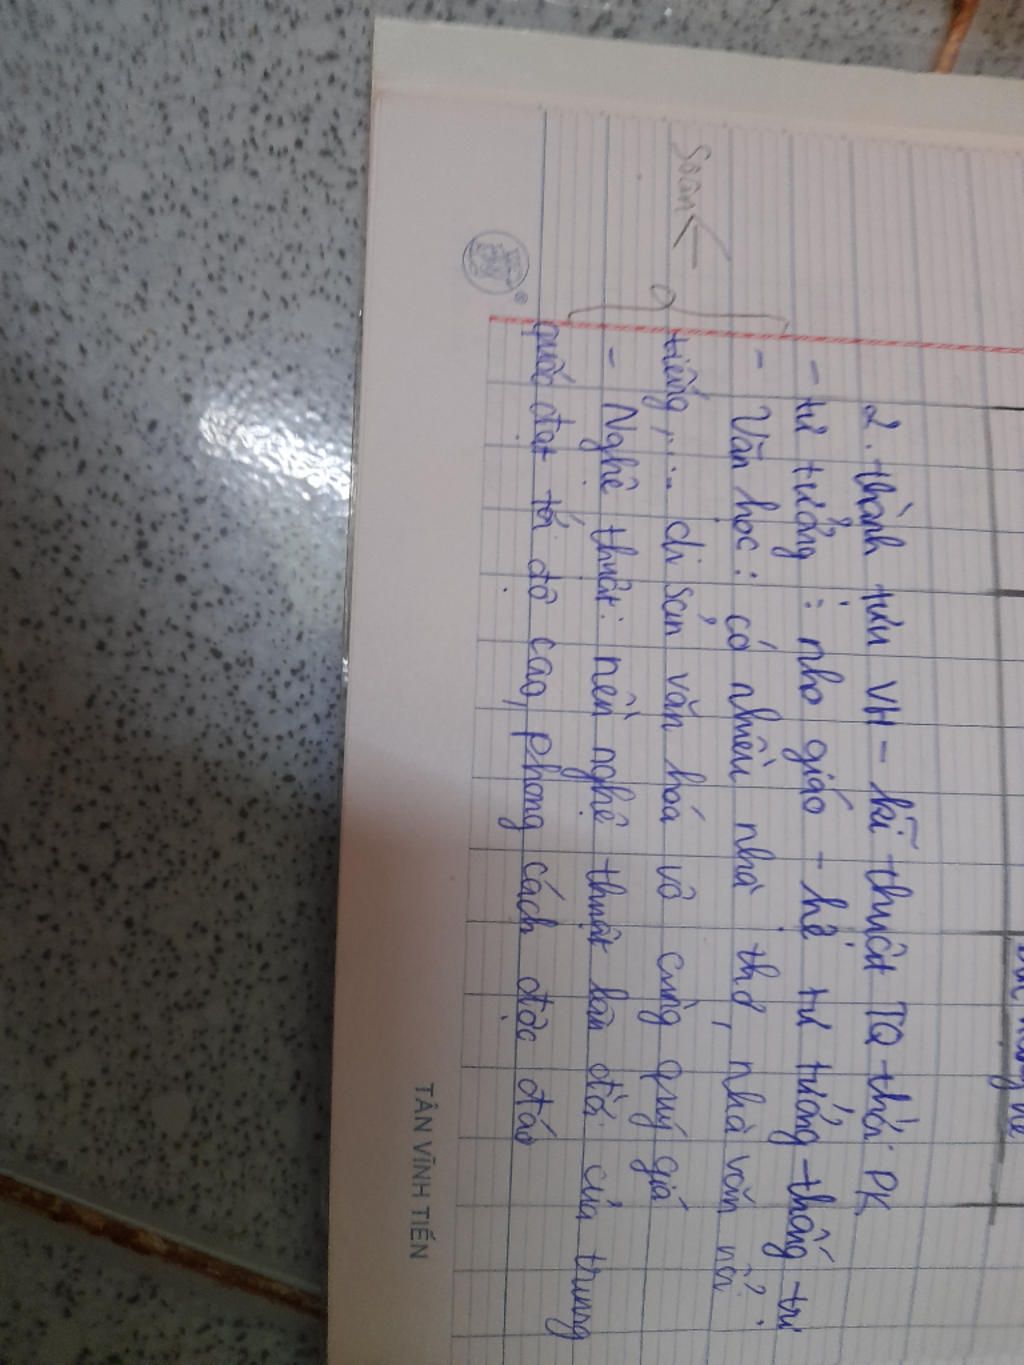 2. thành tựu VH - kĩ thuật TQ thời PK
- tư tưởng : nho giáo - hệ tư tưởng thống trị
- Văn học : có nhiều nhà thơ, nhà văn nổi
tiếng, ... di sản văn hóa vô cùng quý giá
- Nghệ thuật: nền nghệ thuật lâu đời của trung
quốc đạt tới độ cao, phong cách độc đáo
Soạn
TÂN VĨNH TIẾN